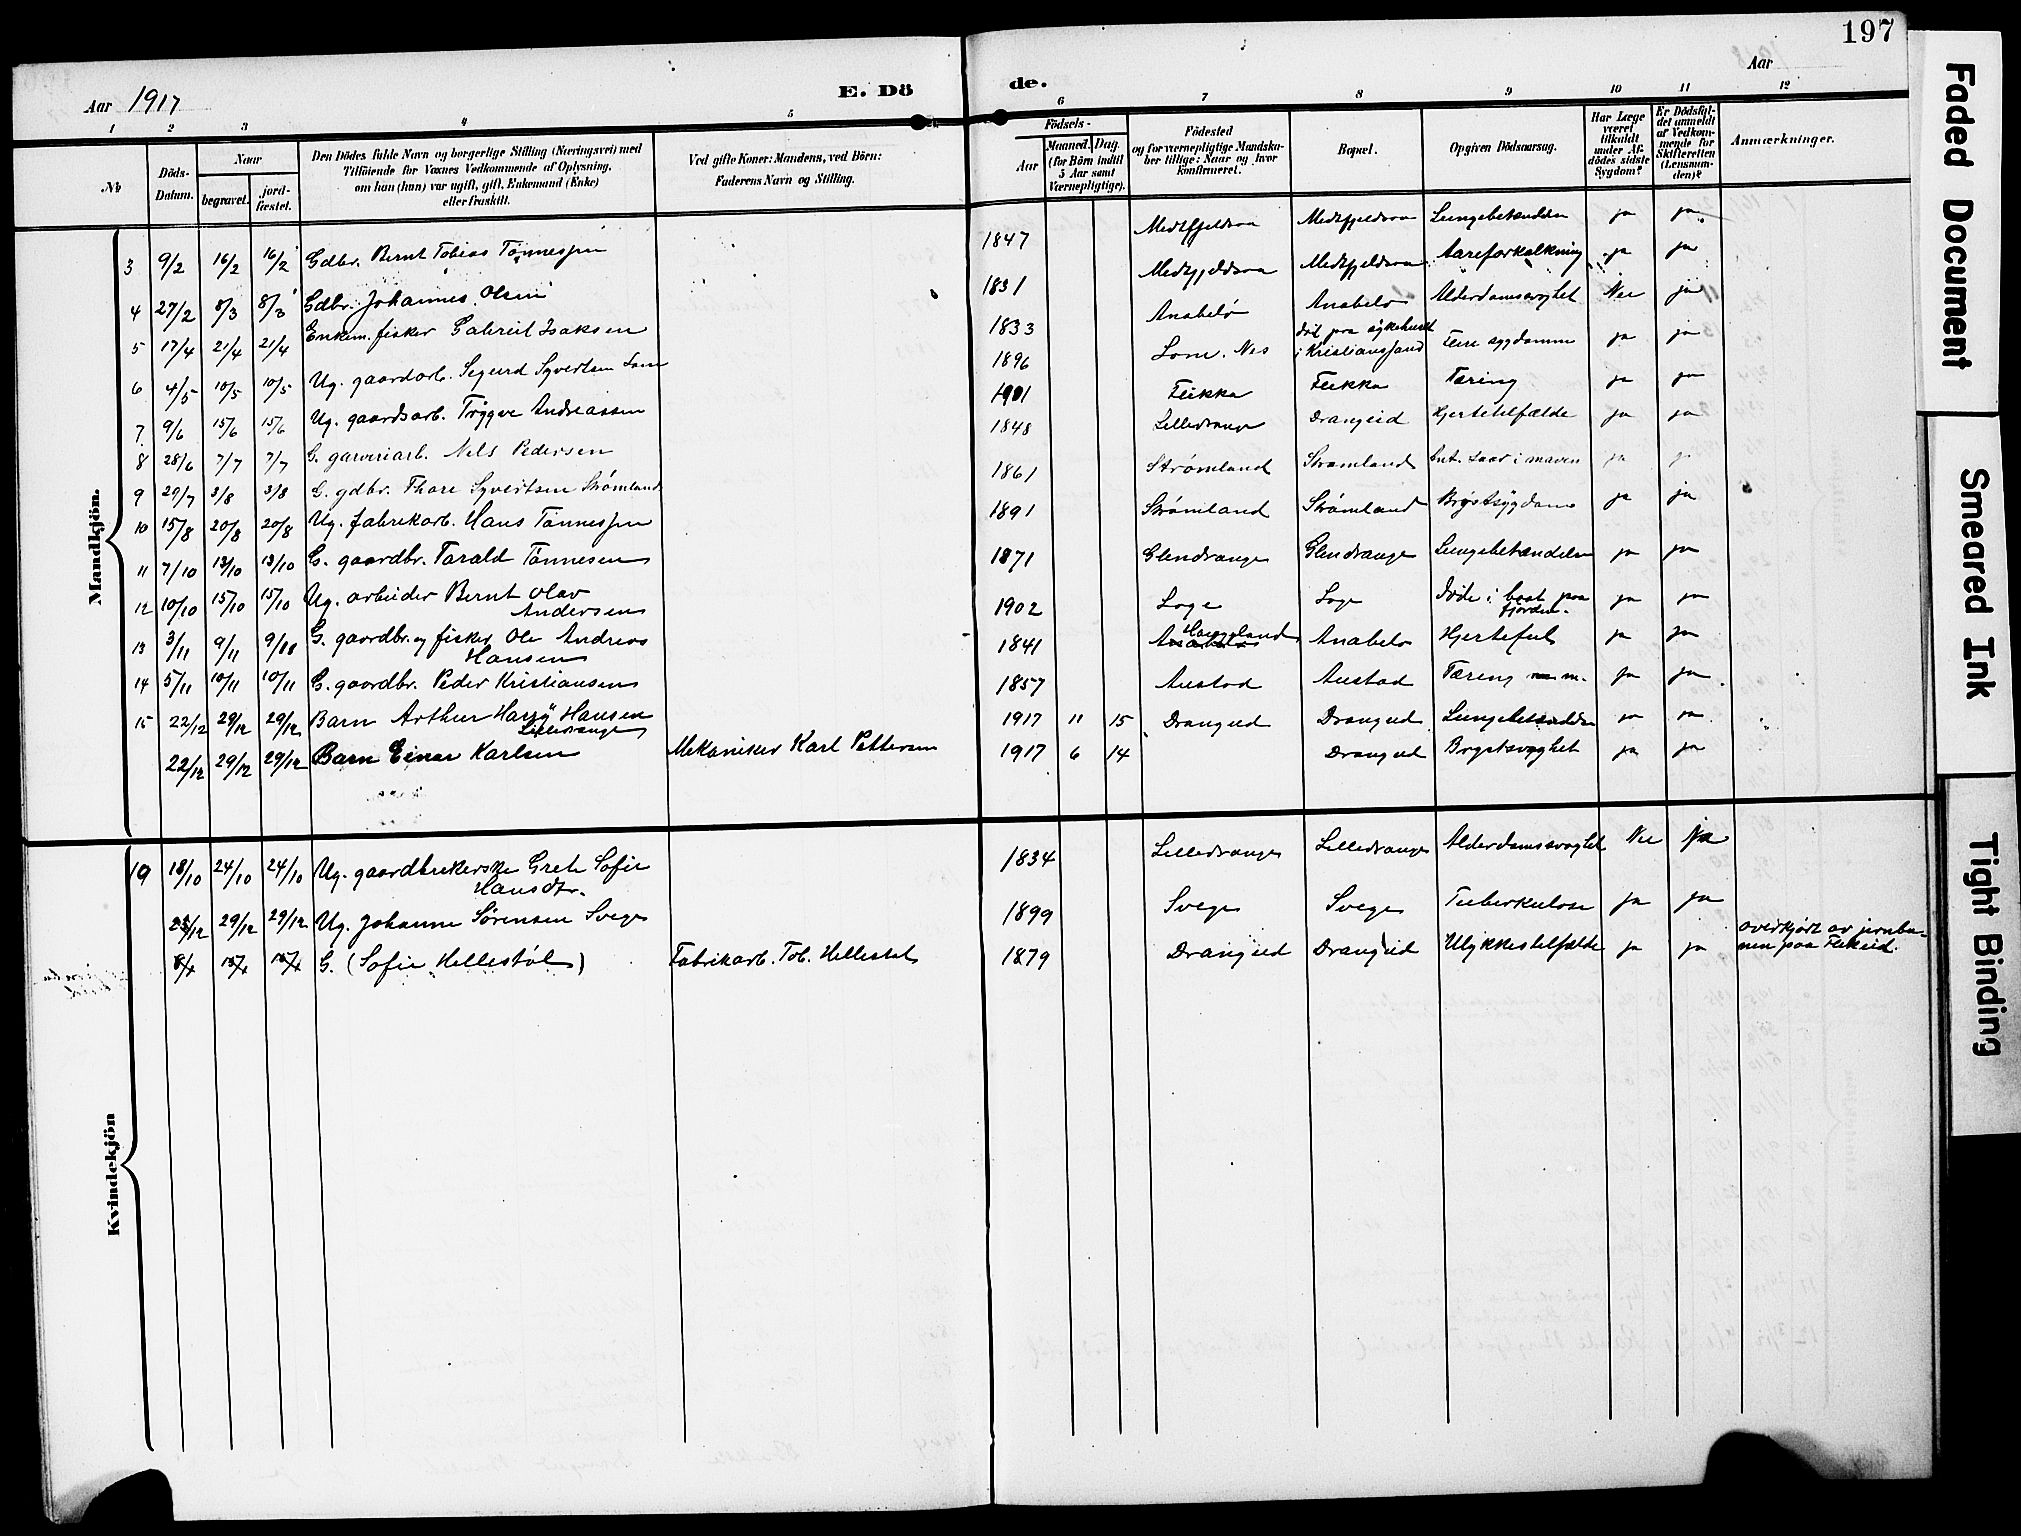 197
Aar 1917
E. Dö
de.
Aar
1 2 3 4 5 6 7 8 9 10 11 12
No
Döds-
Datum.
Naar
begravet.
jord-
fæstet.
Den Dödes fulde Navn og borgerlige Stilling (Næringsvei) med
Tilföiende for Voxnes Vedkommende af Oplysning,
om han (hun) var ugift, gift, Enkemand (Enke)
eller fraskilt.
Ved gifte Koner: Mandens, ved Börn:
Faderens Navn og Stilling.
Födsels-
Aar
Maaned. Dag.
(for Börn indtil
5 Aar samt
Værnepligtige).
Födested
og for værnepligtige Mandska-
ber tillige: Naar og hvor
konfirmeret.
Bopæl.
Opgiven Dödsaarsag.
Har Læge
været
tilkaldt
under Af-
dödes sidste
Sygdom?
Er Dödsfal-
det anmeldt
af Vedkom-
mende for
Skifteretten
(Lensman-
den)?
Anmærkninger.
Mandkjön.
3 9/2 16/2 16/2 Gdbr. Bernt Tobias Tønnesen 1847 Medtfjeldsaa Medtfjeldsaa Lungebetændelse ja ja
4 27/2 8/3 8/3 Gdbr. Johannes Olsen 1831 Medtfjeldsaa Medtfjeldsaa Aareforkalkning ja ja
5 17/4 21/4 21/4 Enkem. fisker Gabreil Isaksen 1833 Anabelø Anabelø Alderdomssvaghet Nei ja
6 4/5 10/5 10/5 Ug. gaardarb. Sigurd Syvertsen Lom 1896 Lom. Nes død paa sykehuset
i Kristianssand sygdomme ja ja
7 9/6 15/6 15/6 Ug. gaardsarb. Trygve Andreassen 1901 Fleikka Flikka Tæring ja ja
8 28/6 7/7 7/7 G. garveriarb. Nels Pedersen 1848 Lilledrange Drangeid Hjertetilfælde ja ja
9 29/7 3/8 3/8 G. gdbr. Thore Syvertsen Strømland 1861 Strømland Strømland saar i maven ja ja
10 15/8 20/8 20/8 Ug. fabrekarb. Hans Tønnessen 1891 Strømland Strømland Brystsygdom ja ja
11 7/10 13/10 13/10 G. gaardbr. Tarald Tønnesen 1871 Glendrange Glendrange Lungebetændelse ja ja
12 10/10 15/10 15/10 Ug. arbeider Bernt Olav
Andersen 1902 Loge Loge Døde i baat paa
fjorden. ja ja
13 3/11 9/11 9/11 G. gaardbr. og fisker Ole Andreas
Hansen 1841 Haugeland Anabelø Hjertefeil ja ja
14 5/11 10/11 10/11 G. gaardbr. Peder Kristiansen 1857 Austad Austad Tæring m. ja ja
15 22/12 29/12 29/12 Barn Arthur Harry Hansen
Lilledrange 1917 11 15 Drangeid Drangeid Lungebetændelse ja ja
22/12 29/12 29/12 Barn Einar Karlsen Mekaniker Karl Pettersen 1917 6 14 Drangeid Brystsvaghet ja ja
Kvindekjön
19 18/10 24/10 24/10 Ug. gaardbrukerske Grete Sofie
Hansdtr. 1834 Lilledrange Lilledrange Alderdomssvaghet Nei Ja
25/12 29/12 29/12 Ug. Johanne Sørensen Svege 1899 Svege Svege Tuberkulose ja ja
8/4 15/4 15/4 G. (Sofie Hellestøl) Fabrikarb. Tob. Hellestøl 1879 Drangeid Drangeid Ulykkestilfælde ja ja overkjørt av jernba-
nen paa Flikeid.
Faded Document
Smeared Ink
Tight Binding